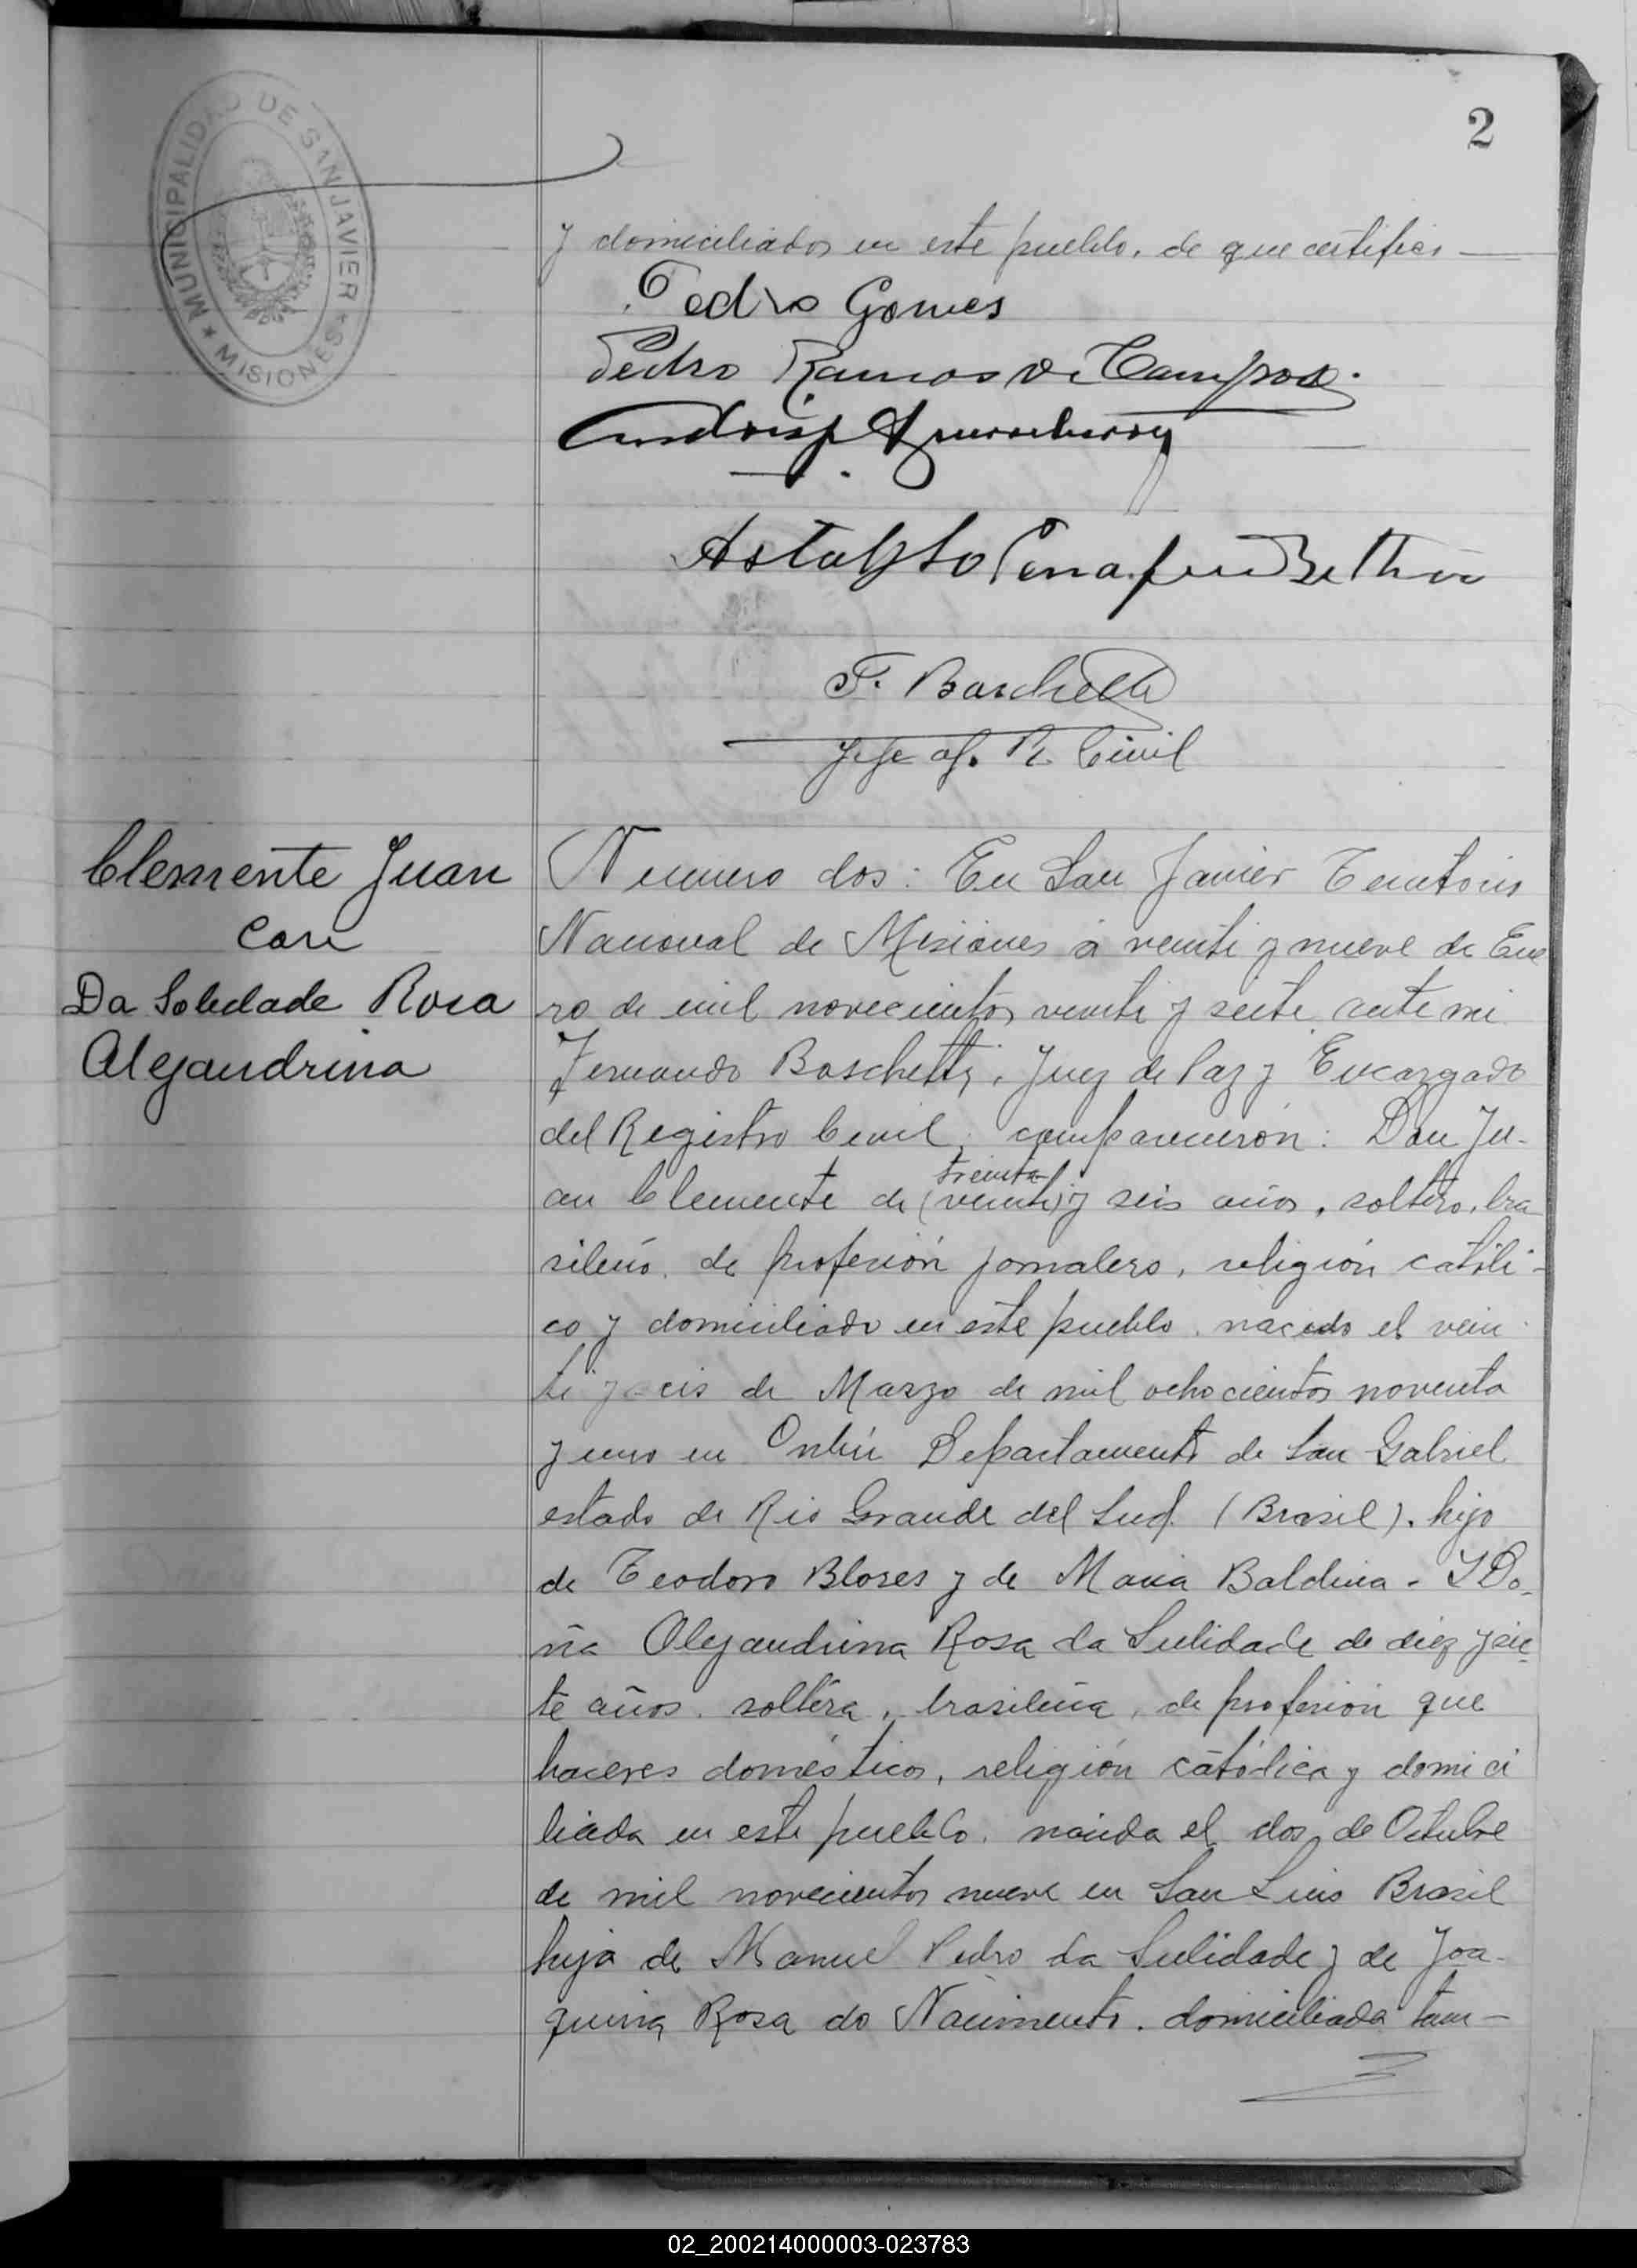 2
MUNICIPALIDAD DE SAN JAVIER
★ MISIONES ★
y domiciliados en este pueblo, de que certifico
Pedro Gomes
Pedro Ramos de Campos.
F. Boschetti
Jefe of. R. Civil
Clemente Juan
con
Da Soledade Rosa
Alejandrina
Numero dos: En San Javier Territorio
Nacional de Misiones á veinti y nueve de Ene
ro de mil novecientos veinti y siete ante mi
Fernando Boschetti, Juez de Paz y Encargado
del Registro Civil, comparecieron: Don Ju-
treinta
an Clemente de (veinti) y seis años, soltero, bra
sileño, de profesión jornalero, religión católi-
co y domiciliado en este pueblo, nacido el vein
ti y seis de Marzo de mil ochocientos noventa
y uno en Departamento de San Gabriel
estado de Rio Grande del Sud (Brasil), hijo
de Teodoro Bloses y de Maria Baldina - Y Do-
ña Alejandrina Rosa da Sulidade de diez y sie
te años, soltera, brasileña, de profesión que
haceres domésticos, religión católica y domici
liada en este pueblo, nacida el dos de Octubre
de mil novecientos nueve en San Luis Brasil
hija de Manuel Pedro da Sulidade y de Joa-
quina Rosa do Nacimento, domiciliada tam-
02_200214000003-023783